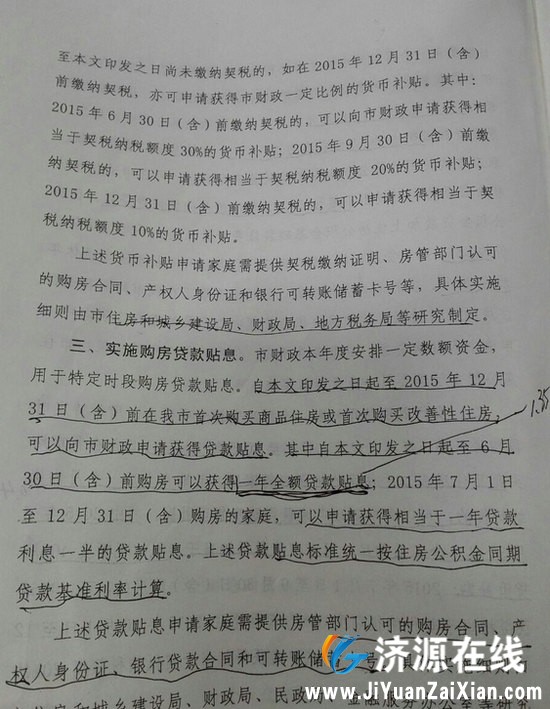 至本文印发之日尚未缴纳契税的，如在 2015 年 12 月 31 日（含）
前缴纳契税，亦可申请获得市财政一定比例的货币补贴。其中：
2015 年 6 月 30 日（含）前缴纳契税的，可以向市财政申请获得相
当于契税纳税额度 30%的货币补贴；2015 年 9 月 30 日（含）前缴
纳契税的，可以申请获得相当于契税纳税额度 20%的货币补贴；
2015 年 12 月 31 日（含）前缴纳契税的，可以申请获得相当于契
税纳税额度 10%的货币补贴。
上述货币补贴申请家庭需提供契税缴纳证明、房管部门认可
的购房合同、产权人身份证和银行可转账储蓄卡号等，具体实施
细则由市住房和城乡建设局、财政局、地方税务局等研究制定。
三、实施购房贷款贴息。市财政本年度安排一定数额资金，
用于特定时段购房贷款贴息。自本文印发之日起至 2015 年 12 月
31 日（含）前在我市首次购买商品住房或首次购买改善性住房，
可以向市财政申请获得贷款贴息。其中自本文印发之日起至 6 月
30 日（含）前购房可以获得一年全额贷款贴息；2015 年 7 月 1 日
至 12 月 31 日（含）购房的家庭，可以申请获得相当于一年贷款
利息一半的贷款贴息。上述贷款贴息标准统一按住房公积金同期
贷款基准利率计算。
上述贷款贴息申请家庭需提供房管部门认可的购房合同、产
权人身份证、银行贷款合同和可转账储
住房和城乡建设局、财政局、民政局、金融服务办公室等研究
济源在线
www.JiYuanZaiXian.com